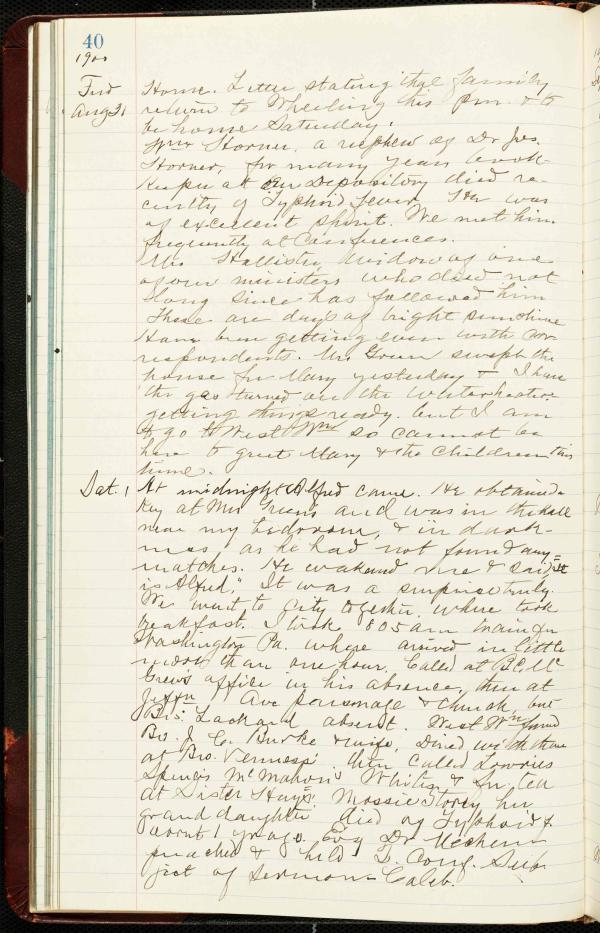 40
1900
Frid Home. Letter stating that family
Aug 31 return to Wheeling this p.m. & to
be home Saturday.
Wm Horner, a nephew of Dr Jos.
Horner, for many years book-
keeper at our Depository died re-
cently of Typhoid fever. He was
of excellent spirit. We met him
frequently at Conferences.
Mrs Hollister, widow of one
of our ministers who died not
long since has followed him
These are days of bright sunshine
Have been getting even with cor-
respondents. Mrs Green swept the
house for Mary yesterday & I have
the gas turned on the water heater
getting things ready. but I am
to go to West Wn so cannot be
here to greet Mary & the children this
time.
Sat. 1 At midnight Alfred came. He obtained
key at Mrs Greens and was in the hall
near my bedroom, & in dark-
ness as he had not found any
matches. He wakened me & said, "it
is Alfred." It was a surprise truly.
We went to city together, where took
breakfast. I took 8 05 am train for
Washington Pa. where arrived in little
more than one hour. Called at B.C. Mc
Grews office in his absence, then at
Jeffn Ave parsonage & church, but
Bro. Lackland absent. West Wn found
Bro. J. C. Burke & wife, Dined with them
at Bro. then called Lowries
McMahon's & for tea
at Sister Hays. Story her
granddaughter died of Typhoid f.
about 1 yr ago. Evg Dr Mechem
preached & held Q. Conf. Sub-
ject of Sermon - Caleb.